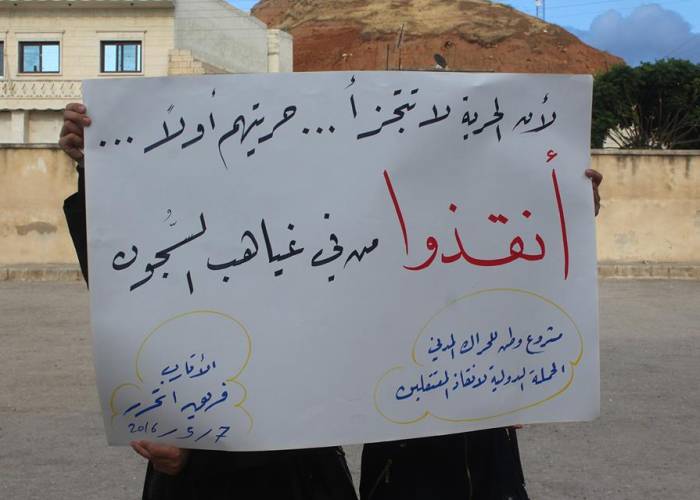 لأن الحرية لا تتجزأ ... حريتهم أولاً ...
أنقذوا من في غياهب السُّجون
مشروع وطن للحراك المدني
الحملة الدولية لانقاذ المعتقلين
الأتارب
فريق التحرر
7 / 5 / 2016